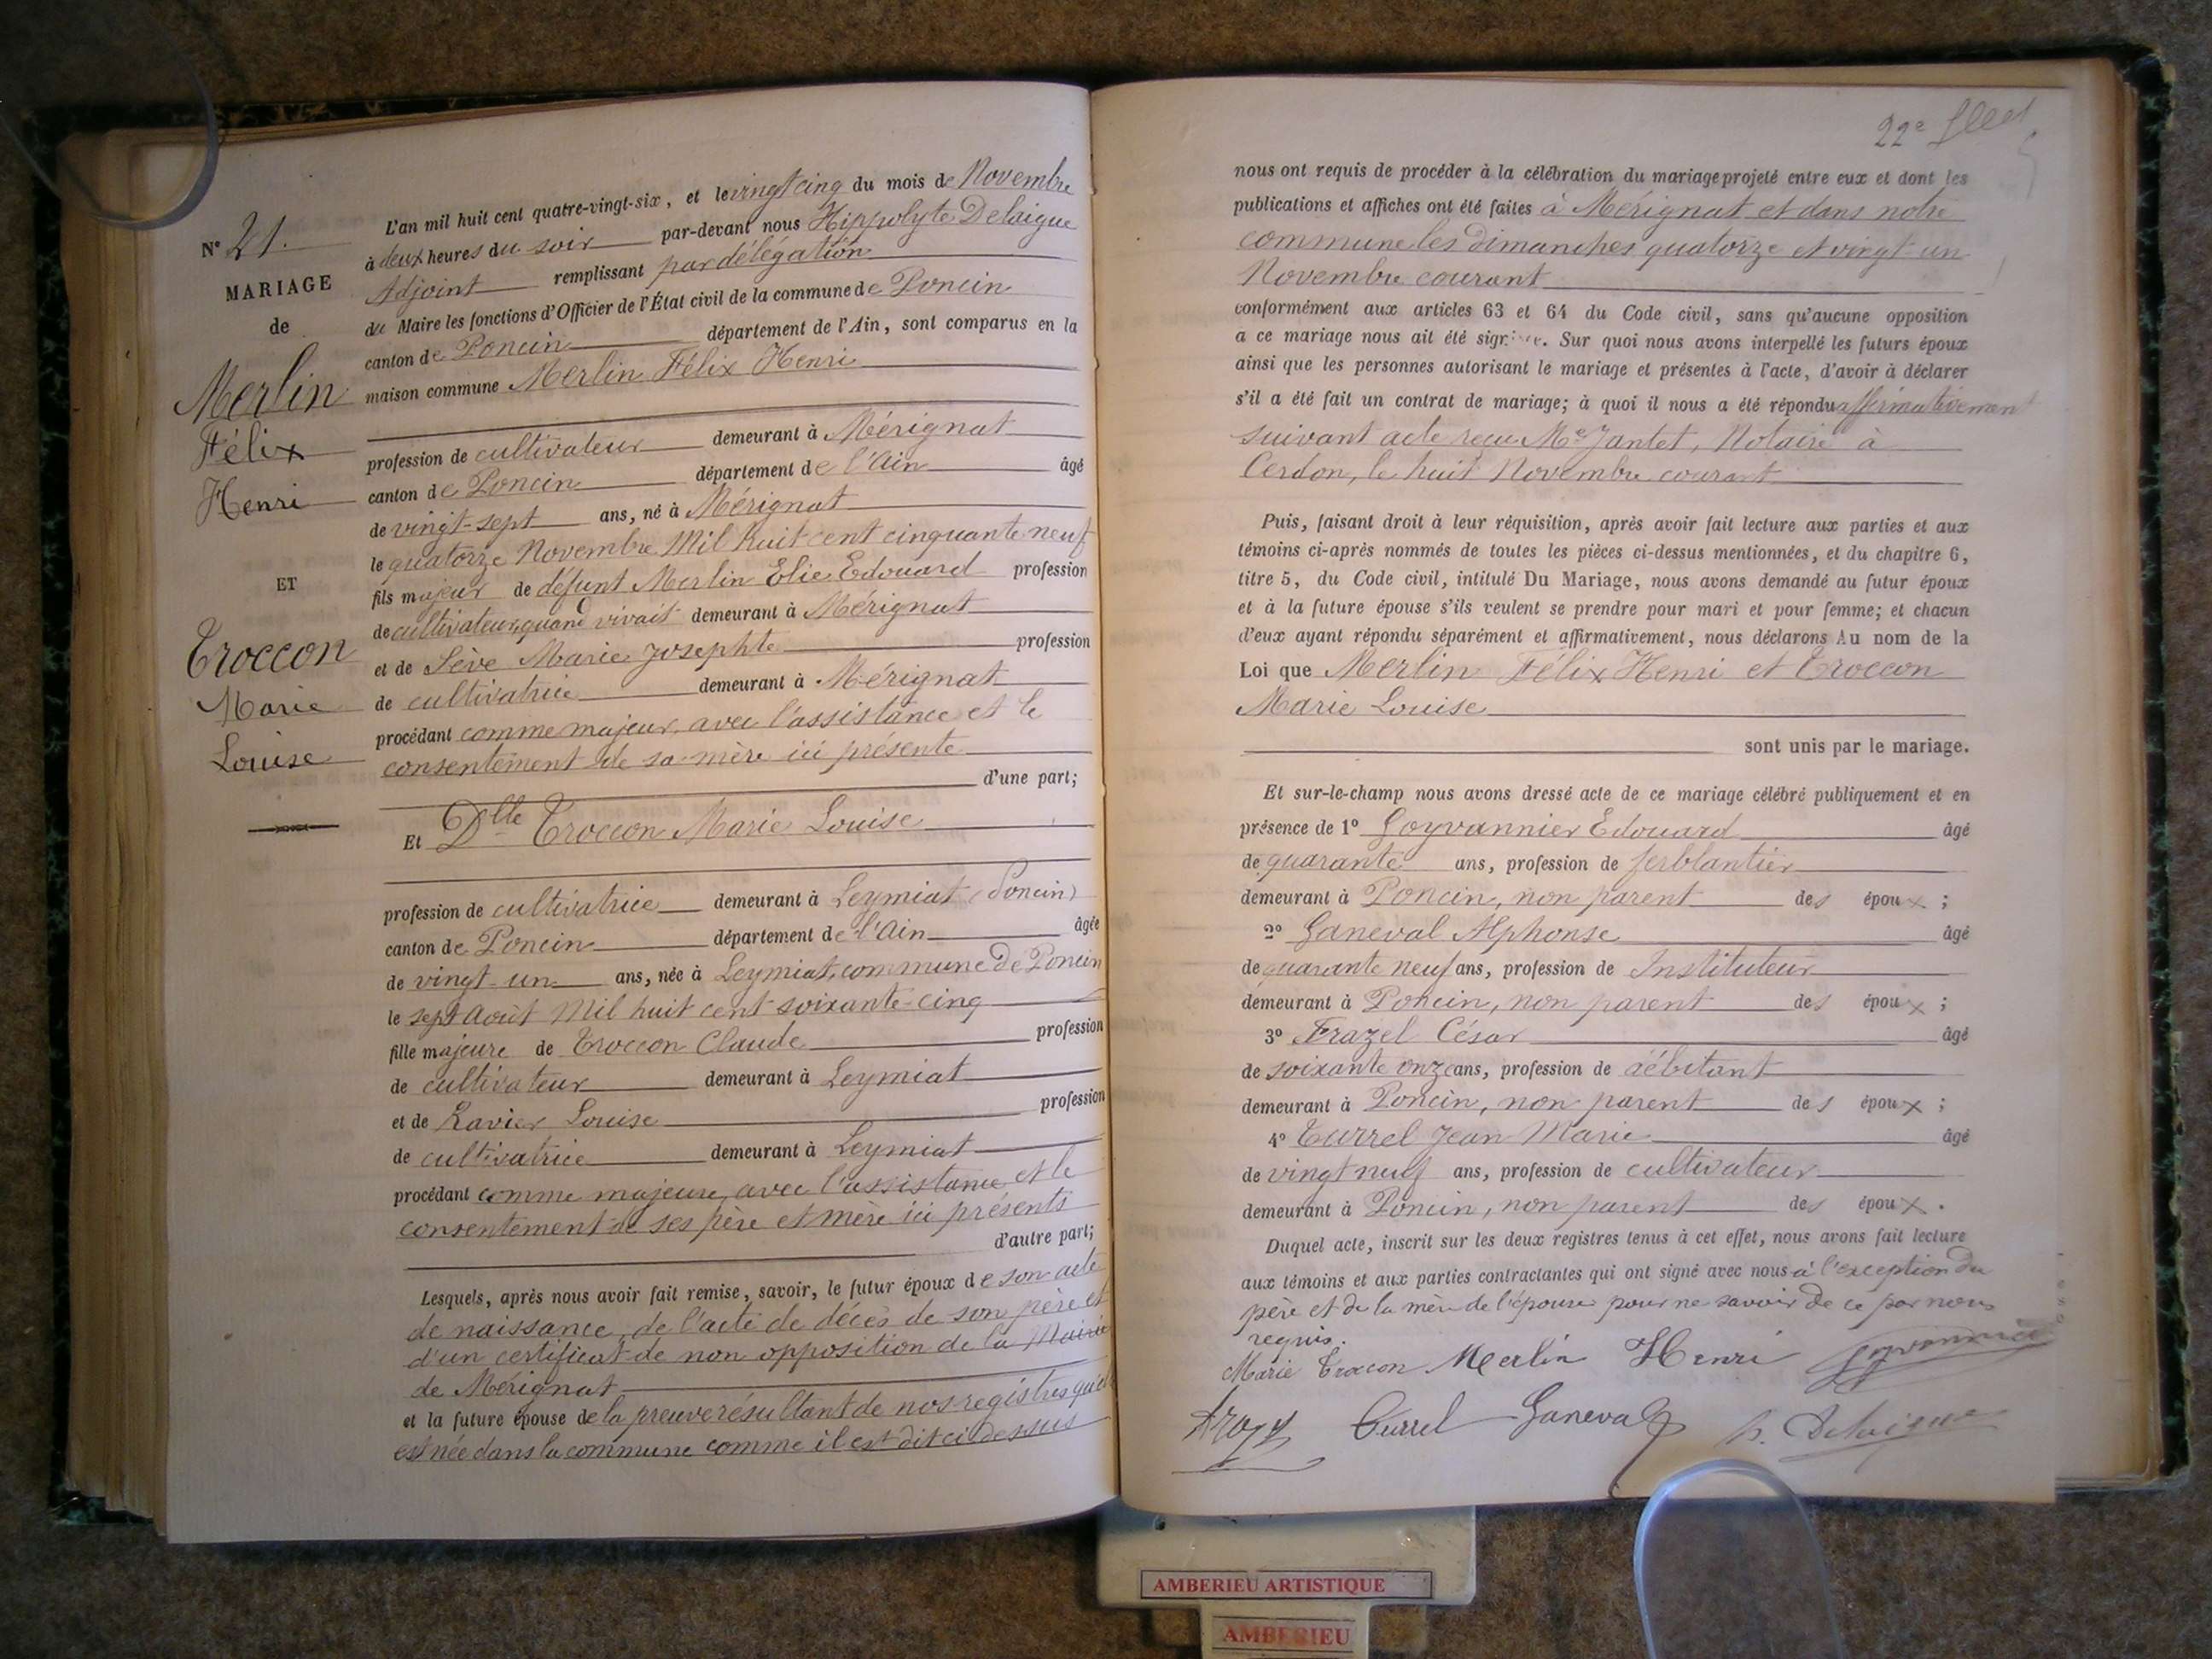 N° 21.
MARIAGE
de
Merlin
Félix
Henri
ET
Troccon
Marie
Louise
L'an mil huit cent quatre-vingt-six, et le vingt cinq du mois de Novembre
à deux heures du soir par-devant nous Hippolyte Delaigue
Adjoint remplissant par délégation
du Maire les fonctions d'Officier de l'État civil de la commune de Poncin
canton de Poncin département de l'Ain, sont comparus en la
maison commune Merlin Félix Henri
profession de cultivateur demeurant à Mérignat
canton de Poncin département de l'Ain âgé
de vingt-sept ans, né à Mérignat
le quatorze Novembre Mil huit cent cinquante neuf
fils majeur de défunt Merlin Elie Edouard profession
de cultivateur, quand vivait demeurant à Mérignat
et de Sève Marie Josephte profession
de cultivatrice demeurant à Mérignat
procédant comme majeur, avec l'assistance et le
consentement de sa mère ici présente
d'une part;
Et Dlle Troccon Marie Louise
profession de cultivatrice demeurant à Leymiat (Poncin)
canton de Poncin département de l'Ain âgée
de vingt-un ans, née à Leymiat, commune de Poncin
le sept Août Mil huit cent soixante-cinq
fille majeure de Troccon Claude profession
de cultivateur demeurant à Leymiat
et de Ravier Louise profession
de cultivatrice demeurant à Leymiat
procédant comme majeure, avec l'assistance et le
consentement de ses père et mère ici présents
d'autre part;
Lesquels, après nous avoir fait remise, savoir, le futur époux de son acte
de naissance, de l'acte de décès de son père et
d'un certificat de non opposition de la Mairie
de Mérignat
et la future épouse de la preuve résultant de nos registres qu'elle
est née dans la commune comme il est dit ci dessus
22e
nous ont requis de procéder à la célébration du mariage projeté entre eux et dont les
publications et affiches ont été faites à Mérignat et dans notre
commune les dimanches quatorze et vingt-un
Novembre courant
conformément aux articles 63 et 64 du Code civil, sans qu'aucune opposition
a ce mariage nous ait été signifiée. Sur quoi nous avons interpellé les futurs époux
ainsi que les personnes autorisant le mariage et présentes à l'acte, d'avoir à déclarer
s'il a été fait un contrat de mariage; à quoi il nous a été répondu affirmativement
suivant acte reçu Me Jantet, Notaire à
Cerdon, le huit Novembre courant
Puis, faisant droit à leur réquisition, après avoir fait lecture aux parties et aux
témoins ci-après nommés de toutes les pièces ci-dessus mentionnées, et du chapitre 6,
titre 5, du Code civil, intitulé Du Mariage, nous avons demandé au futur époux
et à la future épouse s'ils veulent se prendre pour mari et pour femme; et chacun
d'eux ayant répondu séparément et affirmativement, nous déclarons Au nom de la
Loi que Merlin Félix Henri et Troccon
Marie Louise
sont unis par le mariage.
Et sur-le-champ nous avons dressé acte de ce mariage célébré publiquement et en
présence de 1° Goyvannier Edouard âgé
de quarante ans, profession de ferblantier
demeurant à Poncin, non parent des époux ;
2° Ganeval Alphonse âgé
de quarante neuf ans, profession de Instituteur
demeurant à Poncin, non parent des époux ;
3° Frazel César âgé
de soixante onze ans, profession de débitant
demeurant à Poncin, non parent des époux ;
4° Turrel Jean Marie âgé
de vingt neuf ans, profession de cultivateur
demeurant à Poncin, non parent des époux.
Duquel acte, inscrit sur les deux registres tenus à cet effet, nous avons fait lecture
aux témoins et aux parties contractantes qui ont signé avec nous à l'exception du
père et de la mère de l'épouse pour ne savoir de ce par nous
requis.
Marie Troccon Merlin Henri Goyvannier
Turrel Ganeval h. Delaigue
AMBERIEU ARTISTIQUE
AMBERIEU